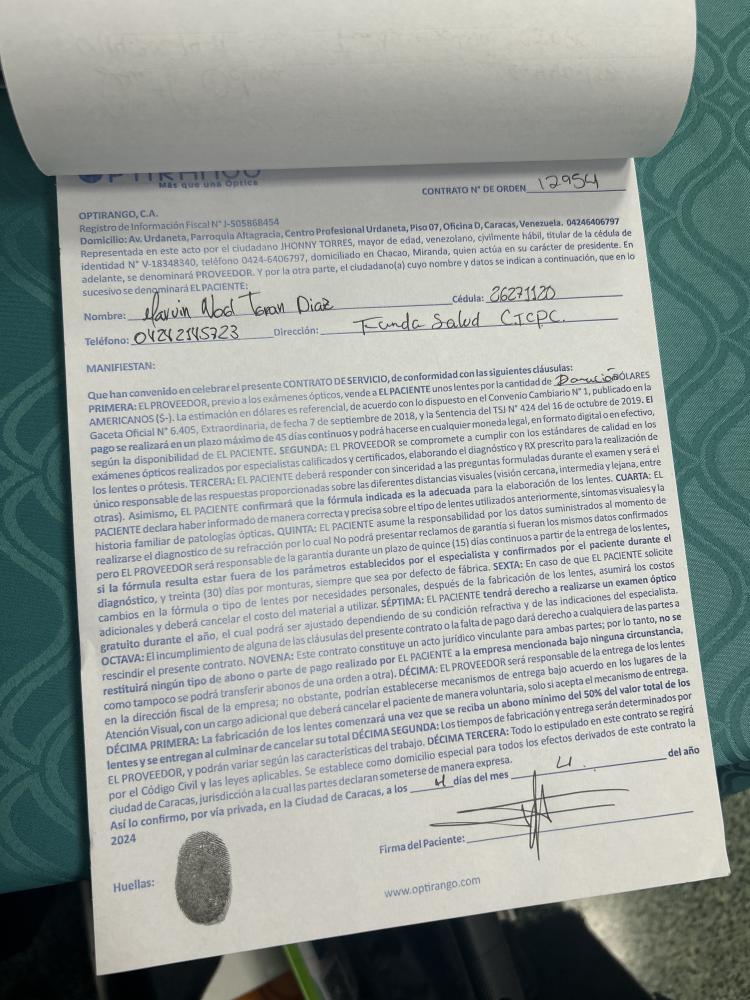 OPTIRANGO
Más que una Óptica
CONTRATO N° DE ORDEN 12954
OPTIRANGO, C.A.
Registro de Información Fiscal N° J-505868454
Domicilio: Av. Urdaneta, Parroquia Altagracia, Centro Profesional Urdaneta, Piso 07, Oficina D, Caracas, Venezuela. 04246406797
Representada en este acto por el ciudadano JHONNY TORRES, mayor de edad, venezolano, civilmente hábil, titular de la cédula de
identidad N° V-18348340, teléfono 0424-6406797, domiciliado en Chacao, Miranda, quien actúa en su carácter de presidente. En
adelante, se denominará PROVEEDOR. Y por la otra parte, el ciudadano(a) cuyo nombre y datos se indican a continuación, que en lo
sucesivo se denominará EL PACIENTE:
Nombre: Marvin Noel Teran Diaz Cédula: 26271120
Teléfono: 04242145723 Dirección: Funda Salud CICPC.
MANIFIESTAN:
Que han convenido en celebrar el presente CONTRATO DE SERVICIO, de conformidad con las siguientes cláusulas:
PRIMERA: EL PROVEEDOR, previo a los exámenes ópticos, vende a EL PACIENTE unos lentes por la cantidad de Donación DÓLARES
AMERICANOS ($-). La estimación en dólares es referencial, de acuerdo con lo dispuesto en el Convenio Cambiario N° 1, publicado en la
Gaceta Oficial N° 6.405, Extraordinaria, de fecha 7 de septiembre de 2018, y la Sentencia del TSJ N° 424 del 16 de octubre de 2019. El
pago se realizará en un plazo máximo de 45 días continuos y podrá hacerse en cualquier moneda legal, en formato digital o en efectivo,
según la disponibilidad de EL PACIENTE. SEGUNDA: EL PROVEEDOR se compromete a cumplir con los estándares de calidad en los
exámenes ópticos realizados por especialistas calificados y certificados, elaborando el diagnóstico y RX prescrito para la realización de
los lentes o prótesis. TERCERA: EL PACIENTE deberá responder con sinceridad a las preguntas formuladas durante el examen y será el
único responsable de las respuestas proporcionadas sobre las diferentes distancias visuales (visión cercana, intermedia y lejana, entre
otras). Asimismo, EL PACIENTE confirmará que la fórmula indicada es la adecuada para la elaboración de los lentes. CUARTA: EL
PACIENTE declara haber informado de manera correcta y precisa sobre el tipo de lentes utilizados anteriormente, síntomas visuales y la
historia familiar de patologías ópticas. QUINTA: EL PACIENTE asume la responsabilidad por los datos suministrados al momento de
realizarse el diagnostico de su refracción por lo cual No podrá presentar reclamos de garantía si fueran los mismos datos confirmados
pero EL PROVEEDOR será responsable de la garantía durante un plazo de quince (15) días continuos a partir de la entrega de los lentes,
si la fórmula resulta estar fuera de los parámetros establecidos por el especialista y confirmados por el paciente durante el
diagnóstico, y treinta (30) días por monturas, siempre que sea por defecto de fábrica. SEXTA: En caso de que EL PACIENTE solicite
cambios en la fórmula o tipo de lentes por necesidades personales, después de la fabricación de los lentes, asumirá los costos
adicionales y deberá cancelar el costo del material a utilizar. SÉPTIMA: EL PACIENTE tendrá derecho a realizarse un examen óptico
gratuito durante el año, el cual podrá ser ajustado dependiendo de su condición refractiva y de las indicaciones del especialista.
OCTAVA: El incumplimiento de alguna de las cláusulas del presente contrato o la falta de pago dará derecho a cualquiera de las partes a
rescindir el presente contrato. NOVENA: Este contrato constituye un acto jurídico vinculante para ambas partes; por lo tanto, no se
restituirá ningún tipo de abono o parte de pago realizado por EL PACIENTE a la empresa mencionada bajo ninguna circunstancia,
como tampoco se podrá transferir abonos de una orden a otra). DÉCIMA: EL PROVEEDOR será responsable de la entrega de los lentes
en la dirección fiscal de la empresa; no obstante, podrían establecerse mecanismos de entrega bajo acuerdo en los lugares de la
Atención Visual, con un cargo adicional que deberá cancelar el paciente de manera voluntaria, solo si acepta el mecanismo de entrega.
DÉCIMA PRIMERA: La fabricación de los lentes comenzará una vez que se reciba un abono mínimo del 50% del valor total de los
lentes y se entregan al culminar de cancelar su total DÉCIMA SEGUNDA: Los tiempos de fabricación y entrega serán determinados por
EL PROVEEDOR, y podrán variar según las características del trabajo. DÉCIMA TERCERA: Todo lo estipulado en este contrato se regirá
por el Código Civil y las leyes aplicables. Se establece como domicilio especial para todos los efectos derivados de este contrato la
ciudad de Caracas, jurisdicción a la cual las partes declaran someterse de manera expresa.
Así lo confirmo, por vía privada, en la Ciudad de Caracas, a los 4 días del mes 4. del año
2024
Firma del Paciente:
Huellas:
www.optirango.com